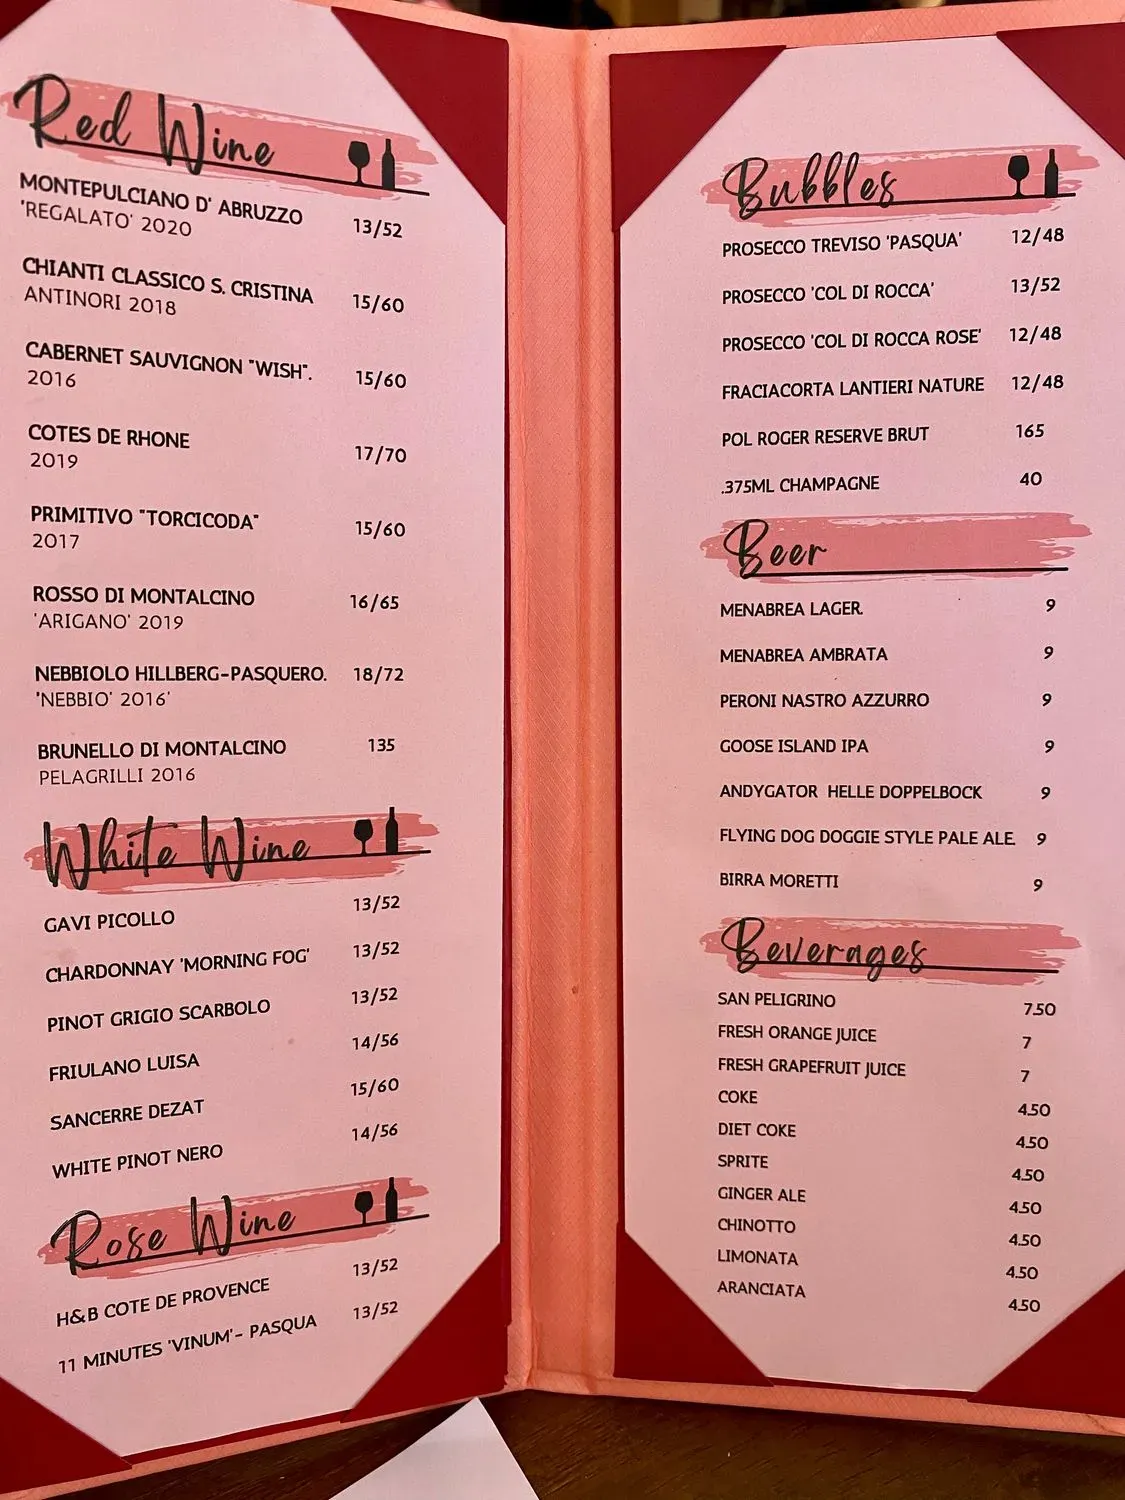 Red Wine
MONTEPULCIANO D' ABRUZZO 13/52
'REGALATO' 2020
CHIANTI CLASSICO S. CRISTINA 15/60
ANTINORI 2018
CABERNET SAUVIGNON "WISH". 15/60
2016
COTES DE RHONE 17/70
2019
PRIMITIVO "TORCICODA" 15/60
2017
ROSSO DI MONTALCINO 16/65
'ARIGANO' 2019
NEBBIOLO HILLBERG-PASQUERO. 18/72
'NEBBIO' 2016'
BRUNELLO DI MONTALCINO 135
PELAGRILLI 2016
White Wine
GAVI PICOLLO 13/52
CHARDONNAY 'MORNING FOG' 13/52
PINOT GRIGIO SCARBOLO 13/52
FRIULANO LUISA 14/56
SANCERRE DEZAT 15/60
WHITE PINOT NERO 14/56
Rose Wine
H&B COTE DE PROVENCE 13/52
11 MINUTES 'VINUM'- PASQUA 13/52
Bubbles
PROSECCO TREVISO 'PASQUA' 12/48
PROSECCO 'COL DI ROCCA' 13/52
PROSECCO 'COL DI ROCCA ROSE' 12/48
FRACIACORTA LANTIERI NATURE 12/48
POL ROGER RESERVE BRUT 165
.375ML CHAMPAGNE 40
Beer
MENABREA LAGER. 9
MENABREA AMBRATA 9
PERONI NASTRO AZZURRO 9
GOOSE ISLAND IPA 9
ANDYGATOR HELLE DOPPELBOCK 9
FLYING DOG DOGGIE STYLE PALE ALE. 9
BIRRA MORETTI 9
Beverages
SAN PELIGRINO 7.50
FRESH ORANGE JUICE 7
FRESH GRAPEFRUIT JUICE 7
COKE 4.50
DIET COKE 4.50
SPRITE 4.50
GINGER ALE 4.50
CHINOTTO 4.50
LIMONATA 4.50
ARANCIATA 4.50